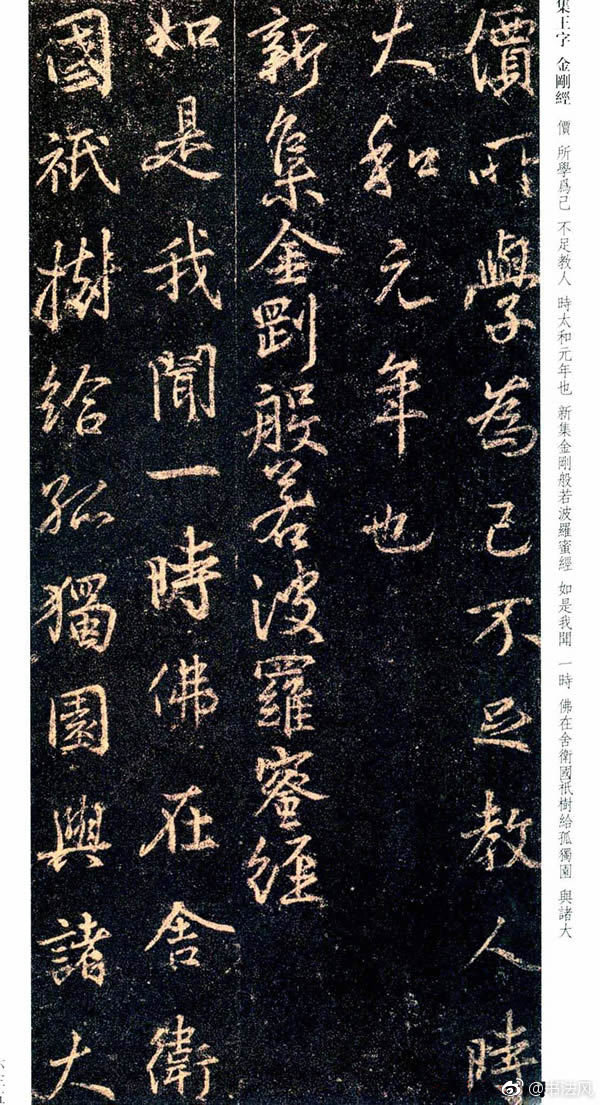 集王字 金剛經 價 所學爲己 不足教人 時太和元年也 新集金剛般若波羅蜜經 如是我聞 一時 佛在舍衛國祇樹給孤獨園 與諸大
價所學為己不足教人時
大和元年也
新集金剛般若波羅蜜經
如是我聞一時佛在舍衛
國祇樹給孤獨園與諸大
@书法风